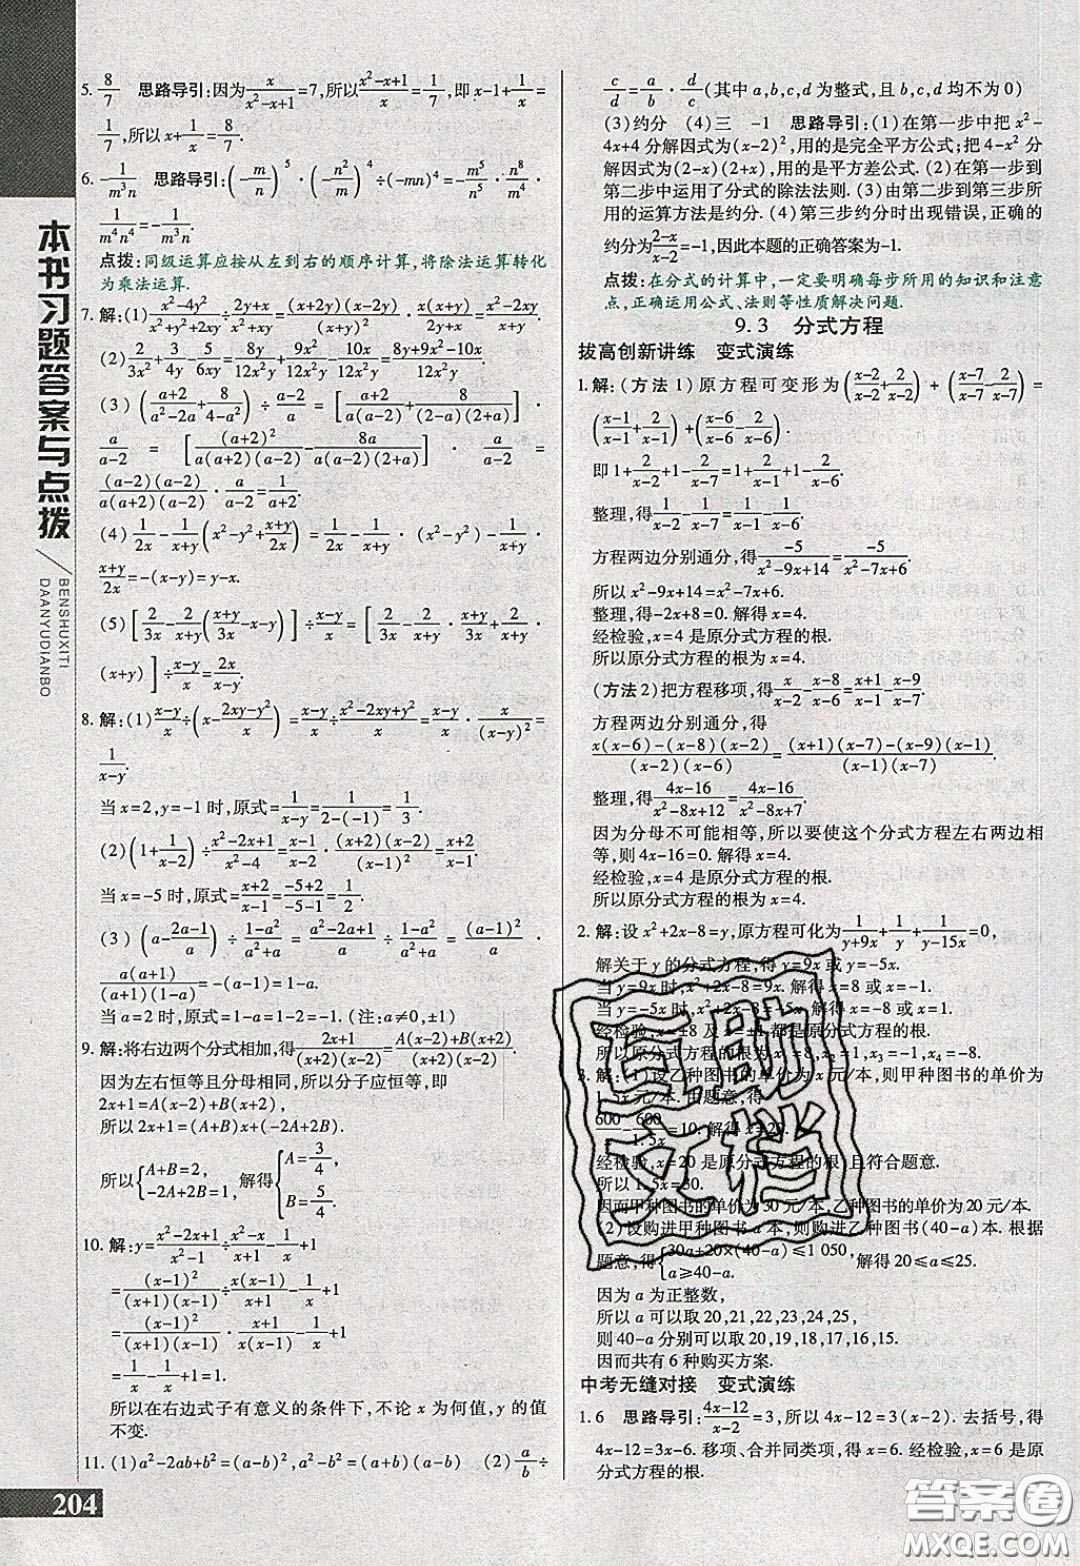 本书习题答案与点拨
BENSHUXITI
DAANYUDIANBO
204
5. 8/7 思路导引:因为 x/(x²-x+1)=7,所以 (x²-x+1)/x=1/7,即 x-1+1/x=
1/7,所以 x+1/x=8/7.
6. -1/(m³n) 思路导引:(-m/n)⁵·(-n/m)⁶÷(-mn)⁴=-m⁵/n⁵·n⁶/m⁶·
1/(m⁴n⁴)=-1/(m³n).
点拨:同级运算应按从左到右的顺序计算,将除法运算转化
为乘法运算.
7. 解:(1)(x²-4y²)/(x²+y²+2xy)÷(2y+x)/(2x²+2xy)=(x+2y)(x-2y)/(x+y)²·2x(x+y)/(x+2y)=(2x²-4xy)/(x+y).
(2)2/(3x²)+3/(4x)-5/(6x)=8y/(12x²y)+9/(12x²y)-10x/(12x²y)=(8y+9-10x)/(12x²y).
(3)((a+2)/(a²-2a)+8/(4-a²))÷(a-2)/a=[(a+2)/(a(a-2))+8/((2-a)(2+a))]·
a/(a-2)=[(a+2)²/(a(a+2)(a-2))-8a/(a(a-2)(2+a))]·a/(a-2)=
(a-2)(a-2)/(a(a+2)(a-2))·a/(a-2)=1/(a+2).
(4)1/(2x)-1/(x-y)(x²-y²+(x+y)/(2x))=1/(2x)-1/(x+y)·(x²-y²)-1/(x+y)·
(x+y)/(2x)=-(x-y)=y-x.
(5)[2/(3x)-2/(x+y)((x+y)/(3x)-x-y)]÷(x-y)/x=[2/(3x)-2/(3x)+2/(x+y)·
(x+y)]÷(x-y)/x=2x/(x-y).
8. 解:(1)(x-y)/x÷(x-(2xy-y²)/x)=(x-y)/x÷(x²-2xy+y²)/x=(x-y)/x·x/(x-y)²=
1/(x-y).
当 x=2,y=-1 时,原式=1/(x-y)=1/(2-(-1))=1/3.
(2)(1+1/(x-2))÷(x²-2x+1)/(x²-4)=(x-1)/(x-2)·(x+2)(x-2)/(x-1)²=(x+2)/(x-1).
当 x=-5 时,原式=(x+2)/(x-1)=(-5+2)/(-5-1)=1/2.
(3)(a-(2a-1)/a)÷(1-a²)/(a²+a)=(a²-2a+1)/a÷(1-a²)/(a²+a)=-(a-1)²/a·
a(a+1)/((a+1)(a-1))=-(a-1)=1-a.
当 a=2 时,原式=1-a=1-2=-1. (注:a≠0,±1)
9. 解:将右边两个分式相加,得(2x+1)/((x+2)(x-2))=(A(x-2)+B(x+2))/((x+2)(x-2)).
因为左右恒等且分母相同,所以分子应恒等,即
2x+1=A(x-2)+B(x+2)
所以 2x+1=(A+B)x+(-2A+2B)
所以{A+B=2, -2A+2B=1, 解得{A=3/4, B=5/4.
10. 解:y=(x²-2x+1)/(x²-1)÷(x²-x)/(x+1)-1/x+1
=(x-1)²/((x+1)(x-1))÷x(x-1)/(x+1)-1/x+1
=(x-1)²/((x+1)(x-1))·(x+1)/(x(x-1))-1/x+1
=1/x-1/x+1=1.
所以在右边式子有意义的条件下,不论 x 为何值,y 的值
不变.
11. (1)a²-2ab+b²=(a-b)²,a²-b²=(a+b)(a-b) (2)a/b÷
c/d=a/b·d/c(其中 a,b,c,d 为整式,且 b,c,d 均不为 0)
(3)约分 (4)三 -1 思路导引:(1)在第一步中把 x²-
4x+4 分解因式为(x-2)²,用的是完全平方公式;把 4-x² 分
解因式为(2-x)(2+x),用的是平方差公式. (2)在第一步到
第二步中运用了分式的除法法则. (3)由第二步到第三步所
用的运算方法是约分. (4)第三步约分时出现错误,正确的
约分为(2-x)/(x-2)=-1,因此本题的正确答案为-1.
点拨:在分式的计算中,一定要明确每步所用的知识和注意
点,正确运用公式、法则等性质解决问题.
9.3 分式方程
拔高创新讲练 变式演练
1. 解:(方法 1)原方程可变形为((x-2)/(x-2)+2/(x-2))+((x-7)/(x-7)-2/(x-7))=
((x-1)/(x-1)+2/(x-1))+((x-6)/(x-6)-2/(x-6)).
即 1+2/(x-2)+1-2/(x-7)=1+2/(x-1)+1-2/(x-6).
整理,得1/(x-2)-1/(x-7)=1/(x-1)-1/(x-6).
方程两边分别通分,得-5/(x²-9x+14)=-5/(x²-7x+6).
所以 x²-9x+14=x²-7x+6.
整理,得-2x+8=0. 解得 x=4.
经检验,x=4 是原分式方程的根.
所以原分式方程的根为 x=4.
(方法 2)把方程移项,得x/(x-2)-(x-8)/(x-6)=(x+1)/(x-1)-(x-9)/(x-7).
方程两边分别通分,得
(x(x-6)-(x-8)(x-2))/((x-2)(x-6))=((x+1)(x-7)-(x-9)(x-1))/((x-1)(x-7)).
整理,得(4x-16)/(x²-8x+12)=(4x-16)/(x²-8x+7).
因为分母不可能相等,所以要使这个分式方程左右两边相
等,则 4x-16=0. 解得 x=4.
经检验,x=4 是原分式方程的根.
所以原分式方程的根为 x=4.
2. 解:设 x²+2x-8=y,原方程可化为1/(y+9x)+1/y+1/(y-15x)=0,
解关于 y 的分式方程,得 y=9x 或 y=-5x.
当 y=9x 时,x²+2x-8=9x. 解得 x=8 或 x=-1.
当 y=-5x 时,x²+2x-8=-5x. 解得 x=-8 或 x=1.
经检验,x=±8 及 x=±1 都是原分式方程的根.
所以原分式方程的根为 x₁=8,x₂=1,x₃=-1,x₄=-8.
3. 解:(1)设乙种图书的单价为 x 元/本,则甲种图书的单价为
1.5x 元/本. 由题意,得
600/x-600/1.5x=10. 解得 x=20.
经检验,x=20 是原分式方程的根,且符合题意.
所以 1.5x=30.
因而甲种图书的单价为 30 元/本,乙种图书的单价为 20 元/本.
(2)设购进甲种图书 a 本,则购进乙种图书(40-a)本. 根据
题意,得{30a+20×(40-a)≤1 050, a≥40-a. 解得 20≤a≤25.
因为 a 为正整数,
所以 a 可以取 20,21,22,23,24,25,
则 40-a 分别可以取 20,19,18,17,16,15.
因而共有 6 种购买方案.
中考无缝对接 变式演练
1. 6 思路导引:(4x-12)/(x-2)=3,所以 4x-12=3(x-2). 去括号,得
4x-12=3x-6. 移项、合并同类项,得 x=6. 经检验,x=6 是原
分式方程的根.
互助
文档
答案圈
MXQE.COM